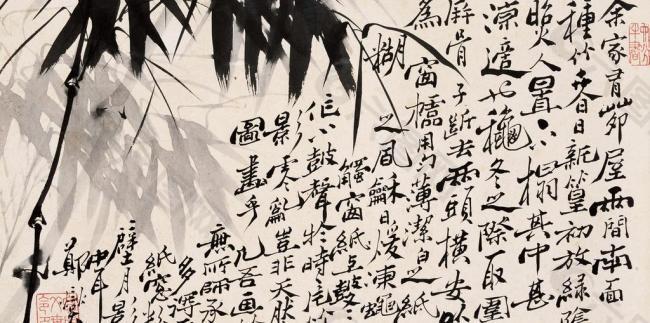 余家有茆屋兩間南面
種竹春日新篁初放綠陰
照人置一小榻其中甚
涼適也龝冬之際取圍
屏骨子斷去兩頭橫安以
為窗櫺用勻薄潔白之紙
糊之風和日暖凍蠅
觸窗紙上鼓鼓
作小鼓聲於時
影零亂豈非天然
圖畫乎凡吾畫竹
無所師承
多得
紙窗粉
壁月影
鄭